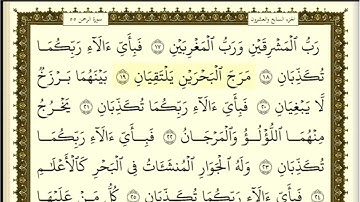 الجزء السابع والعشرون سورة الرحمن ٥٥
رَبُّ ٱلْمَشْرِقَيْنِ وَرَبُّ ٱلْمَغْرِبَيْنِ ١٧ فَبِأَيِّ ءَالَآءِ رَبِّكُمَا
تُكَذِّبَانِ ١٨ مَرَجَ ٱلْبَحْرَيْنِ يَلْتَقِيَانِ ١٩ بَيْنَهُمَا بَرْزَخٌ
لَّا يَبْغِيَانِ ٢٠ فَبِأَيِّ ءَالَآءِ رَبِّكُمَا تُكَذِّبَانِ ٢١ يَخْرُجُ
مِنْهُمَا ٱللُّؤْلُؤُ وَٱلْمَرْجَانُ ٢٢ فَبِأَيِّ ءَالَآءِ رَبِّكُمَا
تُكَذِّبَانِ ٢٣ وَلَهُ ٱلْجَوَارِ ٱلْمُنشَـَٔاتُ فِى ٱلْبَحْرِ كَٱلْأَعْلَـٰمِ
٢٤ فَبِأَيِّ ءَالَآءِ رَبِّكُمَا تُكَذِّبَانِ ٢٥ كُلُّ مَنْ عَلَيْهَا